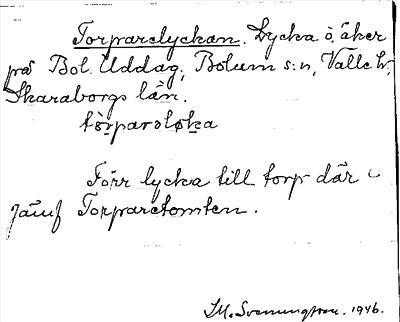 Torparelyckan. Lycka o. åker
på Bol. Uddag, Bolum s:n, Valle hd,
Skaraborgs län.
tòrparəløka
Förr lycka till torp där
jämf Torparetomten.
M. Svenungsson. 1946.